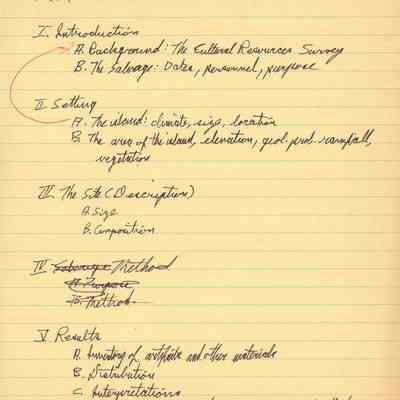 I. Introduction
A. Background: The Cultural Resources Survey
B. The Salvage: Dates, personnel, purpose
II Setting
A. The island: climate, size, location
B. The area of the island, elevation, geol. prod. rainfall,
vegetation
III. The Site (Description)
A. Size
B. Composition
IV. Salvage Method
A. Purpose
B. Method
V Results
A. Inventory of artifacts and other materials
B. Distribution
C. Interpretations